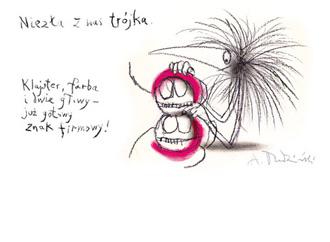 Niezła z nas trójka.
Klajster, farba
i dwie głowy –
już gotowy
znak firmowy!